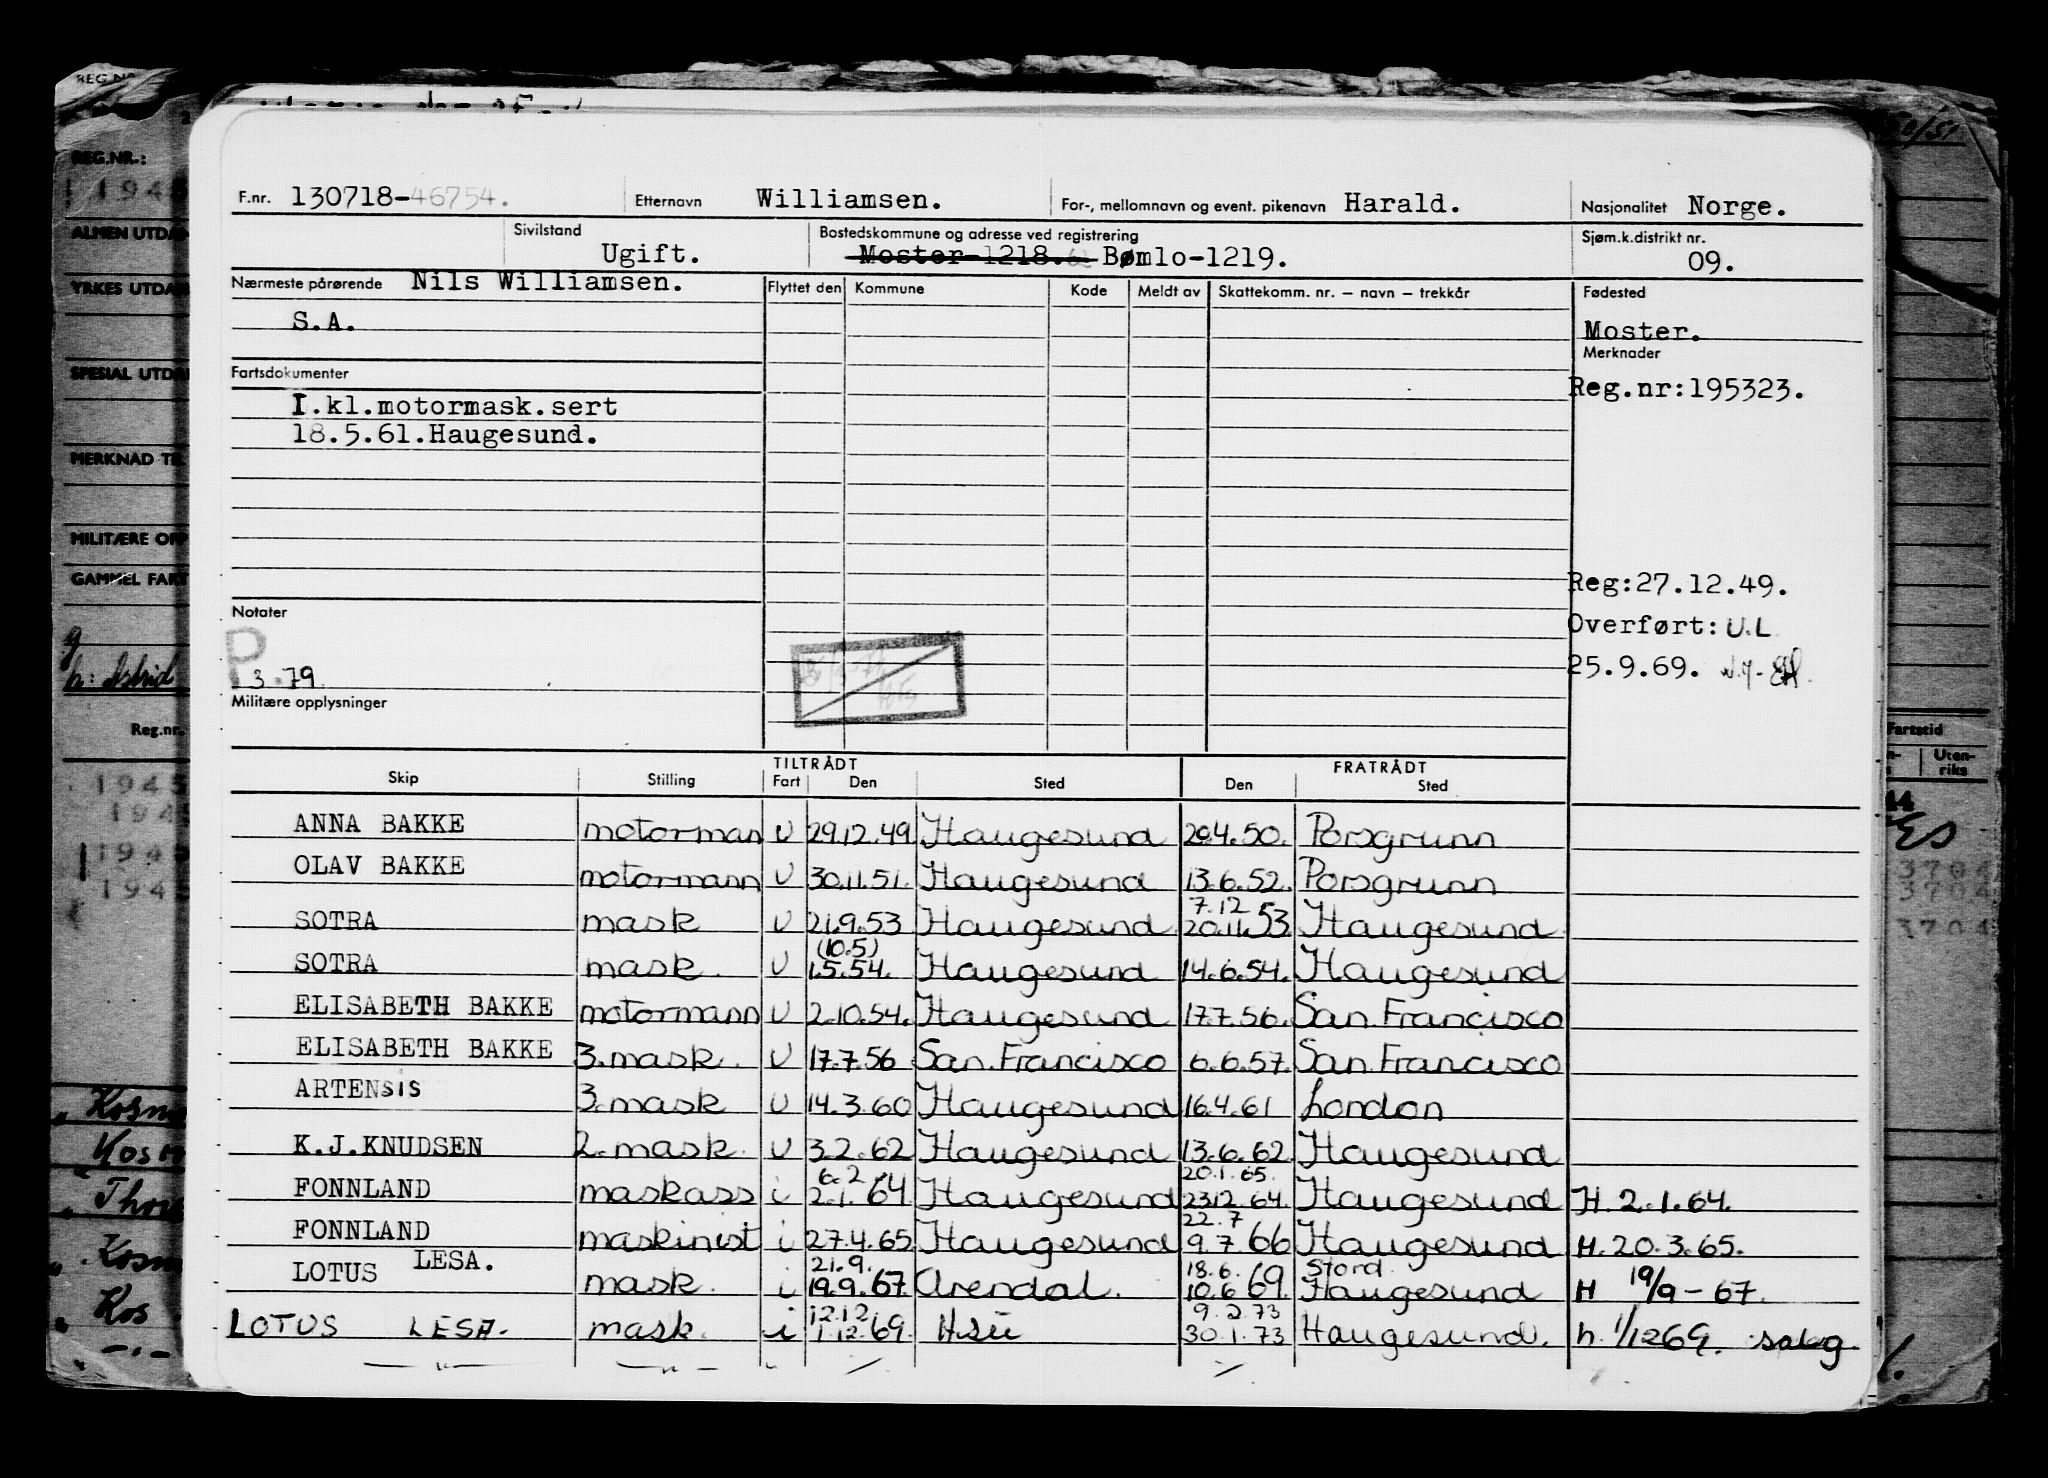 F.nr. 130718-46754. Etternavn Williamsen. For-, mellomnavn og event. pikenavn Harald. Nasjonalitet Norge.
Sivilstand Ugift. Bostedskommune og adresse ved registrering Moster-1218. Bømlo-1219. Sjøm.k.distrikt nr. 09.
Nærmeste pårørende Nils Williamsen. Flyttet den Kommune Kode Meldt av Skattekomm. nr. – navn – trekkår Fødested
S.A. Moster.
Merknader
Fartsdokumenter Reg.nr:195323.
I.kl.motormask.sert
18.5.61.Haugesund.
Reg:27.12.49.
Notater Overført: U.L
P. 3.79 25.9.69.
Militære opplysninger
TILTRÅDT FRATRÅDT
Skip Stilling Fart Den Sted Den Sted
ANNA BAKKE motorman U 29.12.49. Haugesund 20.4.50. Porsgrunn
OLAV BAKKE motormann U 30.11.51. Haugesund 13.6.52. Porsgrunn
7.12
SOTRA mask U 21.9.53 Haugesund 20.11.53. Haugesund
(10.5)
SOTRA mask. U 1.5.54. Haugesund 14.6.54. Haugesund
ELISABETH BAKKE motormann U 2.10.54. Haugesund 17.7.56. San.Francisco
ELISABETH BAKKE 3.mask. U 17.7.56 San.Francisco 6.6.57. San.Francisco
ARTENSIS 3.mask U 14.3.60 Haugesund 16.4.61 London
K.J.KNUDSEN 2.mask. U 3.2.62 Haugesund 13.6.62. Haugesund
6.2 20.1.65.
FONNLAND maskass i 2.1.64 Haugesund 23.12.64. Haugesund H. 2.1.64.
22.7
FONNLAND maskinist i 27.4.65 Haugesund 9.7.66 Haugesund H. 20.3.65.
21.9. 18.6. Stord.
LOTUS LESA. mask. i 19.9.67. Arendal. 10.6.69. Haugesund H 19/9-67.
12.12 9.2.73
LOTUS LESA. mask. i 1.12.69. 30.1.73 Haugesund. h. 1/1269.
—"— —"— " / /
REG.NR.:
1945
ALMEN UTDAN
YRKES UTDAN
SPESIAL UTDAN
MERKNAD TIL
MILITÆRE OPP
GAMMEL FART
Reg.nr.
1945
1945
1945
1945
Kosm
Kosm
Thor
Kosm
Kos
50/51
Fartstid
Uten-
riks
3704
3704
3704